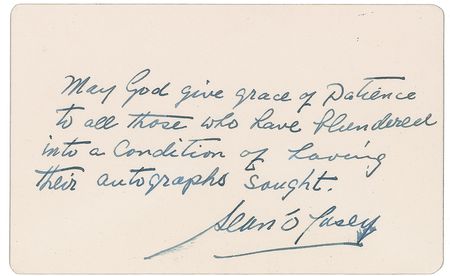 May God give grace of Patience
to all those who have blundered
into a Condition of having
their autographs sought.
Sean O'Casey